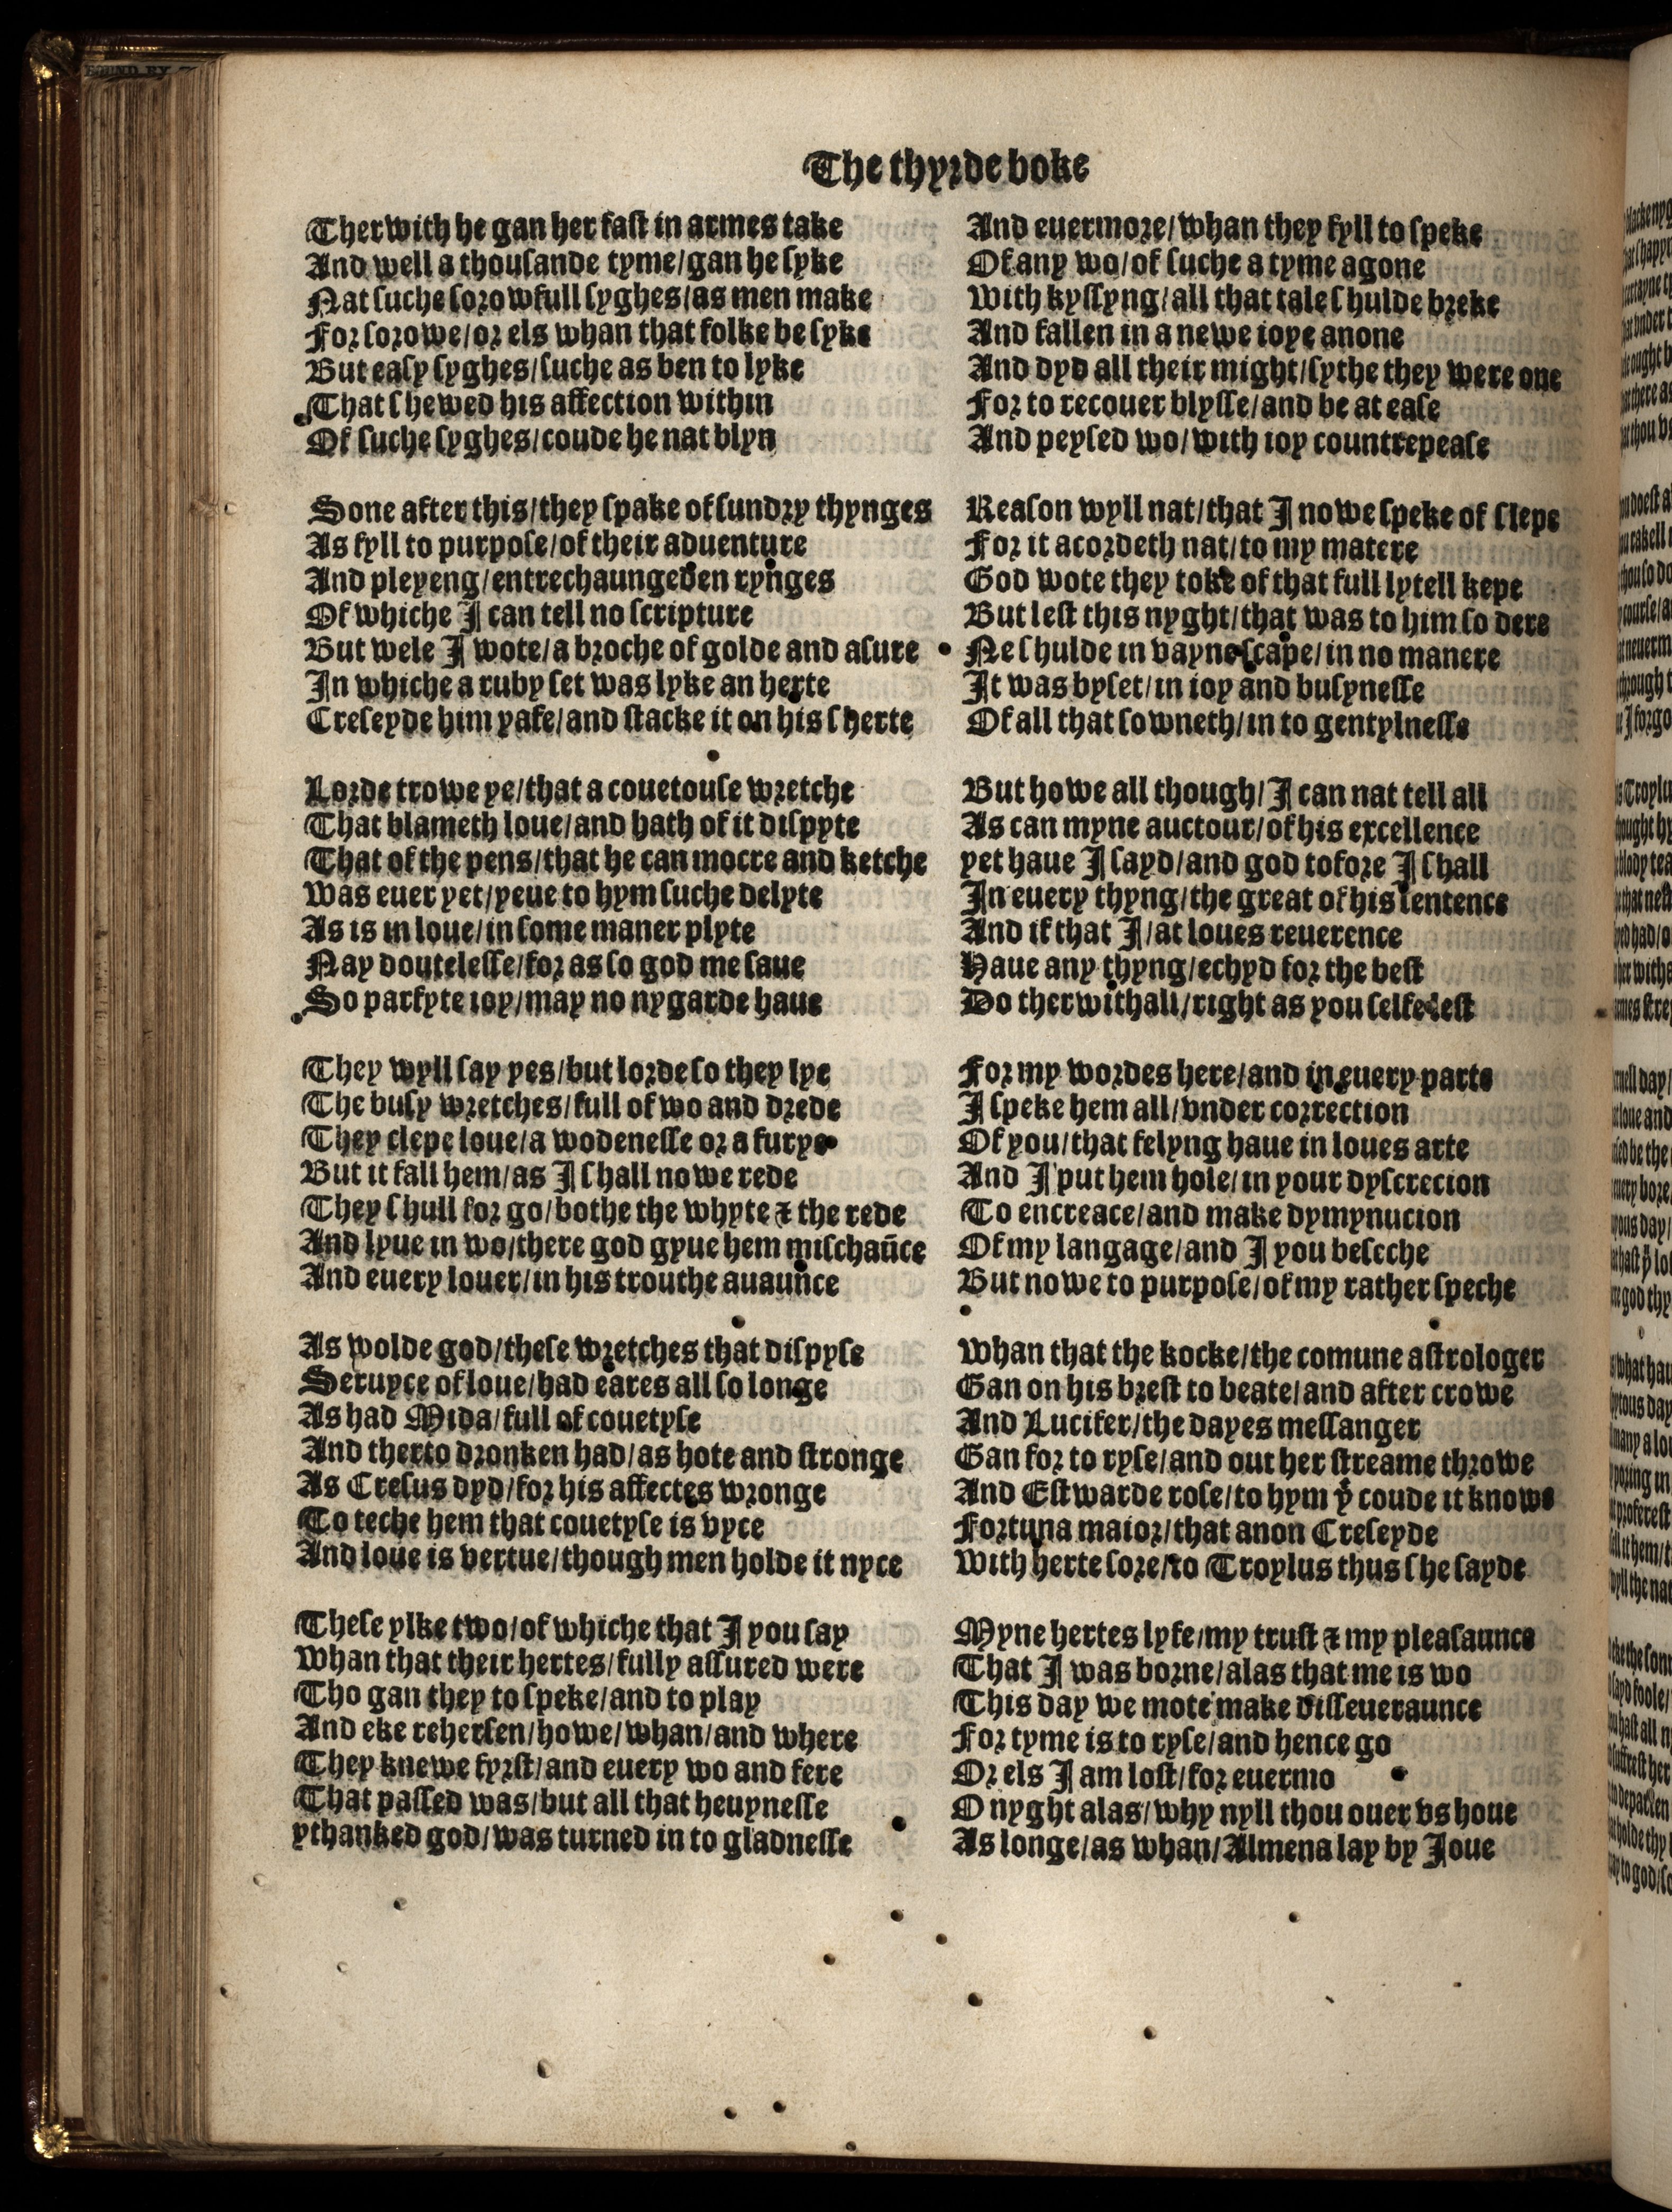 The thyrde boke
Therwith he gan her fast in armes take
And well a thousande tyme/gan he syke
Nat suche sorowfull syghes/as men make
For sorowe/or els whan that folke be syke
But easy syghes/suche as ben to lyke
That shewed his affection within
Of suche syghes/coude he nat blyn
Sone after this/they spake of sundry thynges
As fyll to purpose/of their aduenture
And pleyeng/entrechaungeden rynges
Of whiche I can tell no scripture
But wele I wote/a broche of golde and asure
In whiche a ruby set was lyke an herte
Creseyde him yafe/and stacke it on his sherte
Lorde trowe ye/that a couetouse wretche
That blameth loue/and hath of it dispyte
That of the pens/that he can mocre and ketche
Was euer yet/yeue to hym suche delyte
As is in loue/in some maner plyte
Nay doutelesse/for as so god me saue
So parfyte ioy/may no nygarde haue
They wyll say yes/but lorde so they lye
The busy wretches/full of wo and drede
They clepe loue/a wodenesse or a furye
But it fall hem/as I shall nowe rede
They shull for go/bothe the whyte ⁊ the rede
And lyue in wo/there god gyue hem mischaūce
And euery louer/in his trouthe auaunce
As wolde god/these wretches that dispyse
Seruyce of loue/had eares all so longe
As had Mida/full of couetyse
And therto dronken had/as hote and stronge
As Cresus dyd/for his affectes wronge
To teche hem that couetyse is vyce
And loue is vertue/though men holde it nyce
These ylke two/of whiche that I you say
Whan that their hertes/fully assured were
Tho gan they to speke/and to play
And eke rehersen/howe/whan/and where
They knewe fyrst/and euery wo and fere
That passed was/but all that heuynesse
ythanked god/was turned in to gladnesse
And euermore/whan they fyll to speke
Of any wo/of suche a tyme agone
With kyssyng/all that tale shulde breke
And fallen in a newe ioye anone
And dyd all their might/sythe they were one
For to recouer blysse/and be at ease
And peysed wo/with ioy countrepease
Reason wyll nat/that I nowe speke of slepe
For it acordeth nat/to my matere
God wote they toke of that full lytell kepe
But lest this nyght/that was to him so dere
Ne shulde in vayne scape/in no manere
It was byset/in ioy and busynesse
Of all that sowneth/in to gentylnesse
But howe all though/I can nat tell all
As can myne auctour/of his excellence
yet haue I sayd/and god tofore I shall
In euery thyng/the great of his sentence
And if that I/at loues reuerence
Haue any thyng/echyd for the best
Do therwithall/right as you selfe lest
For my wordes here/and in euery parte
I speke hem all/vnder correction
Of you/that felyng haue in loues arte
And I put hem hole/in your dyscrecion
To encreace/and make dymynucion
Of my langage/and I you beseche
But nowe to purpose/of my rather speche
Whan that the kocke/the comune astrologer
Gan on his brest to beate/and after crowe
And Lucifer/the dayes messanger
Gan for to ryse/and out her streame throwe
And Estwarde rose/to hym yͭ coude it knowe
Fortuna maior/that anon Creseyde
With herte sore/to Troylus thus she sayde
Myne hertes lyfe/my trust ⁊ my pleasaunce
That I was borne/alas that me is wo
This day we mote make disseueraunce
For tyme is to ryse/and hence go
Or els I am lost/for euermo
O nyght alas/why nyll thou ouer vs houe
As longe/as whan/Almena lay by Joue